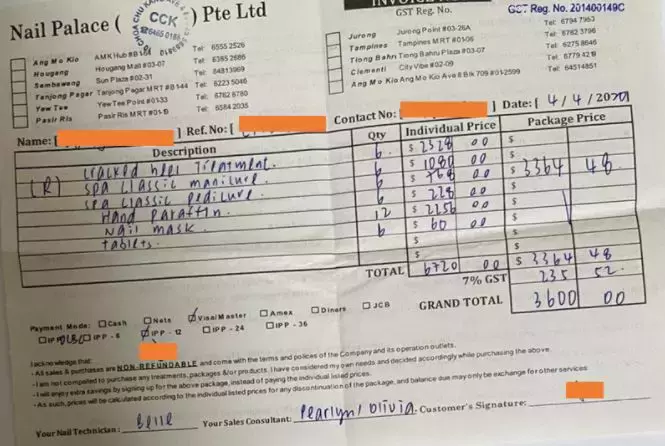 Nail Palace ( CCK ) Pte Ltd
CHOA CHU KANG
INVOICE
GST Reg. No. GST Reg. No. 201400149C
Ang Mo Kio AMK Hub #B1 Tel: 6555 2526
Hougang Hougang Mall #03-07 Tel: 6385 2686
Sembawang Sun Plaza #02-31 Tel: 64813969
Tanjong Pagar Tanjong Pagar MRT #B1-44 Tel: 6223 5046
Yew Tee Yew Tee Point #01-33 Tel: 6762 8780
Pasir Ris Pasir Ris MRT #01-19 Tel: 6584 2035
Jurong Jurong Point #03-26A Tel: 6794 7963
Tampines Tampines MRT #01-06 Tel: 6782 3796
Tiong Bahru Tiong Bahru Plaza #03-07 Tel: 6275 8646
Clementi City Vibe #02-09 Tel: 6779 4218
Ang Mo Kio Ang Mo Kio Ave 8 Blk 709 #01-2599 Tel: 64514851
Name: [ ] Ref.No: [ ] Contact No: [ ] Date: [ 4/4/2021 ]
Description Qty Individual Price Package Price
cracked heel Treatment. 6. $ 2328 00 $
(R) spa classic manicure. 6 $ 1080 00 $ 3364 48
spa classic pedicure. 6 $ 768 00 $
Hand Paraffin. 6 $ 228 00 $
Nail mask. 12 $ 2256 00 $
tablets. 6 $ 60 00 $
$ $
TOTAL 6720 00 $ 3364 48
7% GST 235 52.
GRAND TOTAL 3600 00
Payment Mode: Cash Nets Visa/Master Amex Diners JCB
IPP - 6 IPP - 12 IPP - 24 IPP - 36
I acknowledge that:
- All sales & purchases are NON-REFUNDABLE and come with the terms and polices of the Company and its operation outlets.
- I am not compelled to purchase any treatments, packages &/or products. I have considered my own needs and decided accordingly while purchasing the above.
- I will enjoy extra savings by signing up for the above package, instead of paying the individual listed prices.
- As such, prices will be calculated according to the individual listed prices for any discontinuation of the package, and balance due may only be exchange for other services
Your Nail Technician: Belle Your Sales Consultant: Pearlyn/Olivia. Customer's Signature: